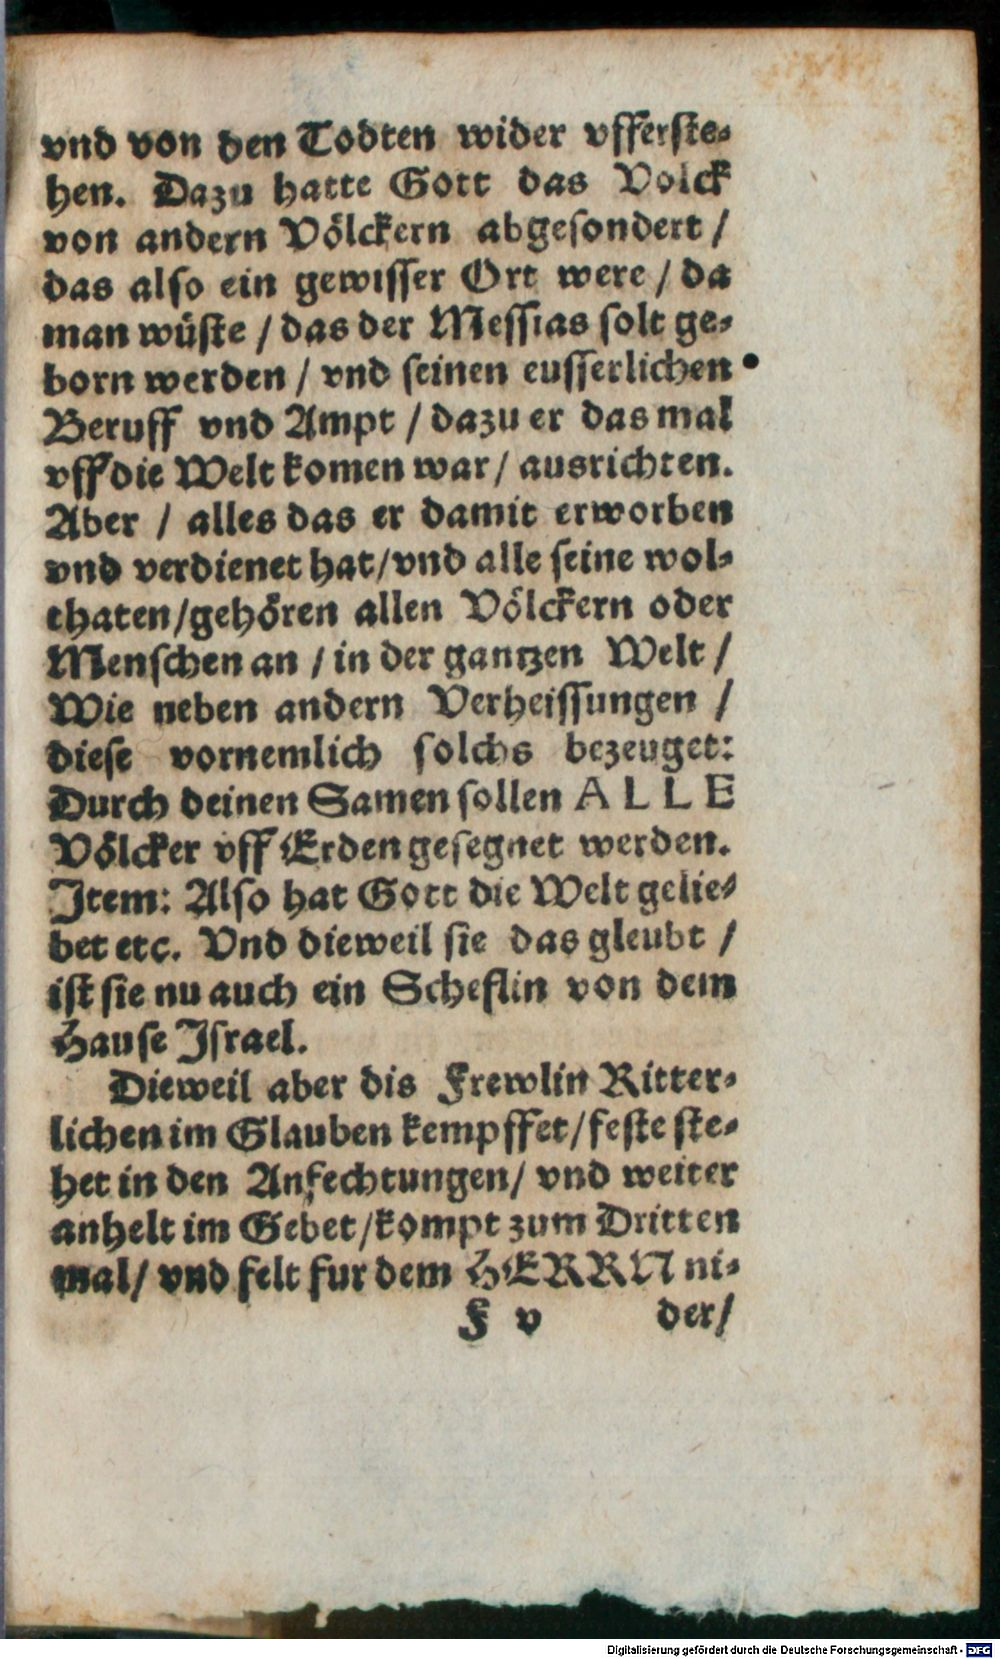 vnd von den Todten wider vfferste-
hen. Dazu hatte Gott das Volck
von andern Völckern abgesondert /
das also ein gewisser Ort were / da
man wüste / das der Messias solt ge-
born werden / vnd seinen eusserlichen
Beruff vnd Ampt / dazu er das mal
vff die Welt komen war / ausrichten.
Aber / alles das er damit erworben
vnd verdienet hat / vnd alle seine wol-
thaten / gehören allen Völckern oder
Menschen an / in der gantzen Welt /
Wie neben andern Verheissungen /
diese vornemlich solchs bezeuget:
Durch deinen Samen sollen ALLE
Völcker vff Erden gesegnet werden.
Item: Also hat Gott die Welt gelie-
bet etc. Vnd dieweil sie das gleubt /
ist sie nu auch ein Scheflin von dem
Hause Israel.
Dieweil aber dis Frewlin Ritter-
lichen im Glauben kempffet / feste ste-
het in den Anfechtungen / vnd weiter
anhelt im Gebet / kompt zum Dritten
mal / vnd felt fur dem HERRN ni-
F v der /
Digitalisierung gefördert durch die Deutsche Forschungsgemeinschaft - DFG